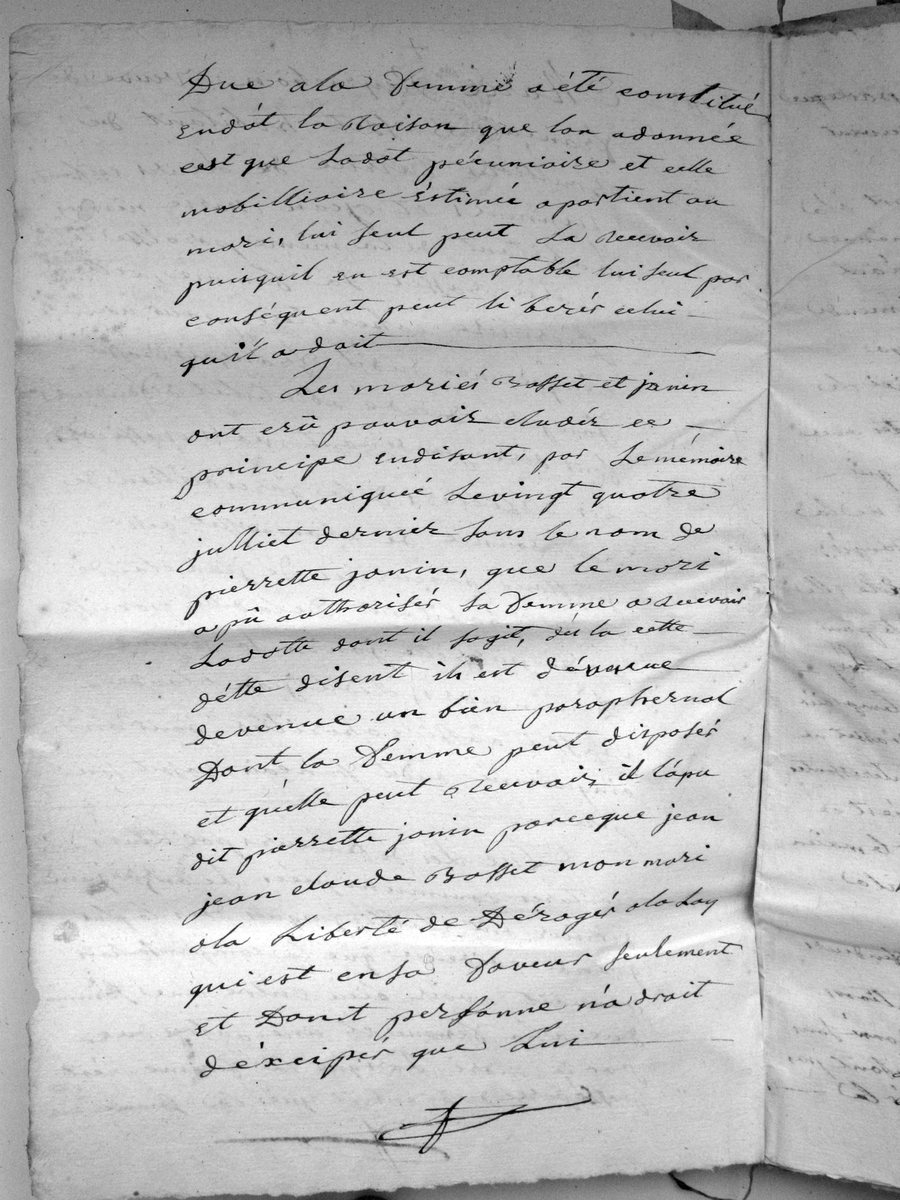 Due a la femme a été constitué
en dot la Raison que lon a donnée
cest que La dot pécuniaire et celle
mobilliaire éstimée apartient au
mari, lui seul peut La recevoir
puisquil en est comptable lui seul par
conséquent peut libérér celui
qui l'a doit
Les mariés Basset et janin
ont crû pouvoir eludér ce
principe en disant, par Le mémoire
communiqueé Le vingt quatre
julliet dernier sous le nom de
pierrette janin, que le mari
a pû authorisér sa femme a recevoir
La dotte dont il sagit, dés la cette
détte disent ils est
devenue un bien paraphernal
Dont la femme peut disposér
et quélle peut Recevoir il la pu
dit pierrette janin parceque jean
jean claude Basset mon mari
a la Liberté de Dérogér a la Loy
qui est en sa faveur seulement
et Dont persónne n'a droit
déxcipér que Lui